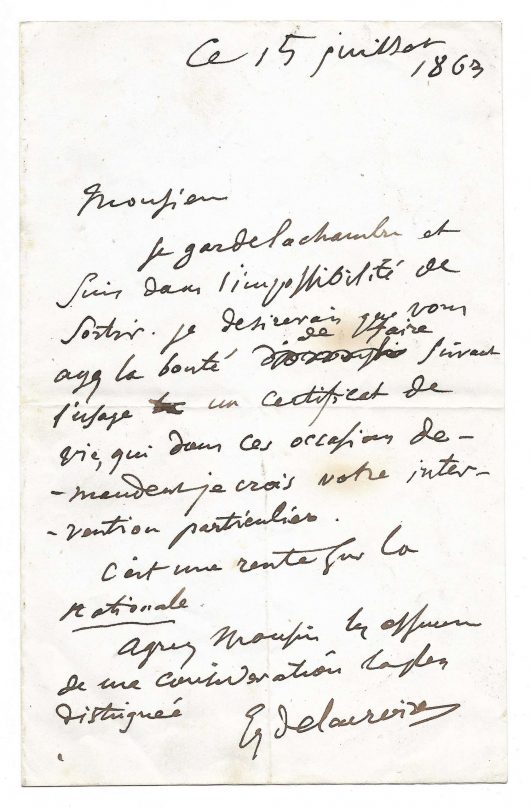 Ce 15 juillet
1863
Monsieur
je garde la chambre et
suis dans l'impossibilité de
sortir. je desirerais que vous
de faire
ayez la bonté suivant
l'usage un certificat de
vie, qui dans ces occasions de-
-mandent je crois votre inter-
-vention particulière.
C'est une rente sur la
Nationale.
Agreez Monsieur les assurances
de ma consideration la plus
distinguée
Eg Delacroix